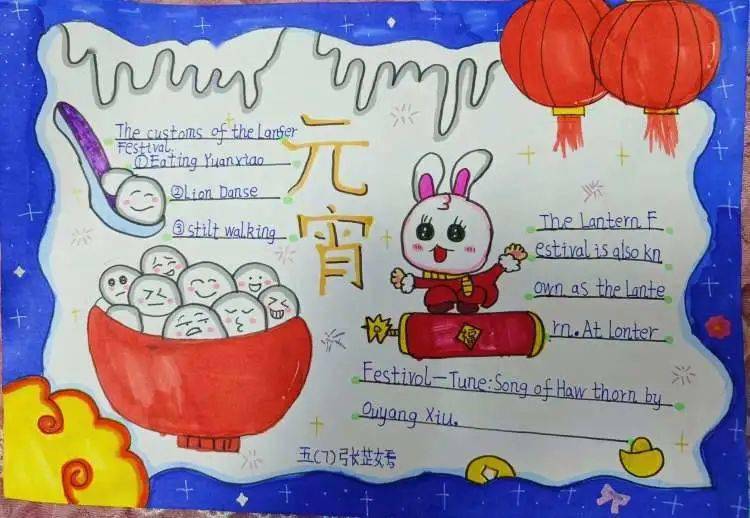 The customs of the Lanser
Festival.
①Eating Yuanxiao
②Lion Danse
③stilt walking
元
宵
The Lantern F
estival is also kn
own as the Lante
rn. At Lonter
Festivol—Tune: Song of Haw thorn by
Ouyang Xiu.
五(7)张芷